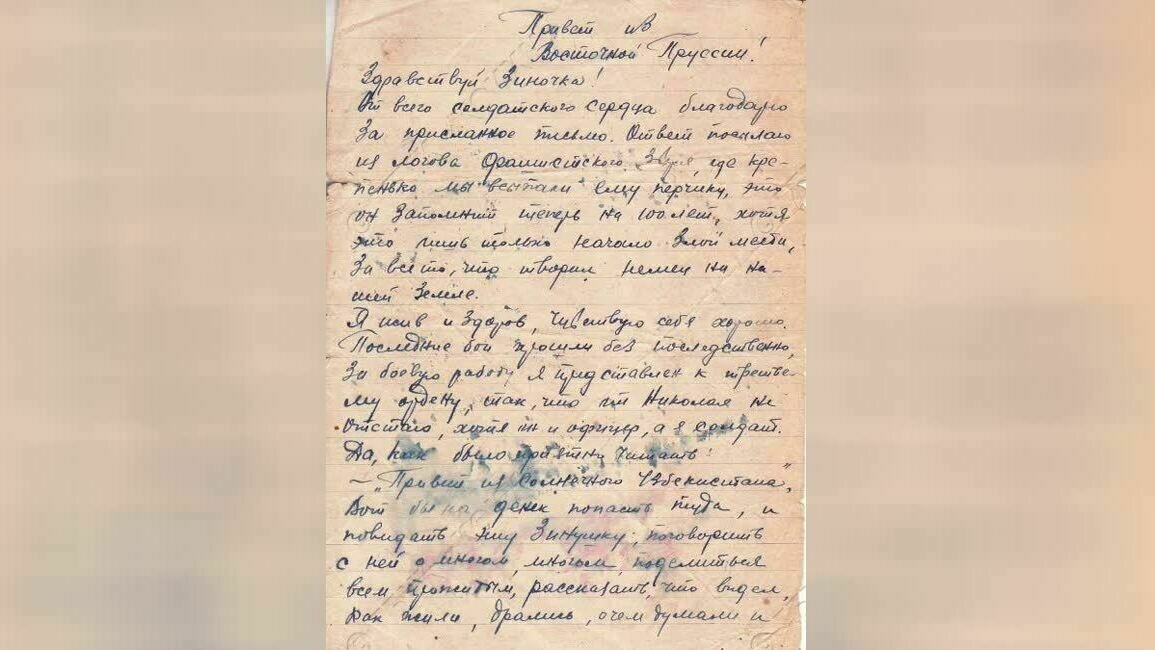 Привет из
Восточной Пруссии!
Здравствуй Зиночка!
От всего солдатского сердца благодарю
за присланное письмо. Ответ посылаю
из логова фашистского зверя, где кре-
пенько мы всыпали ему перчику, это
он запомнит теперь на 100 лет, хотя
это лишь только начало злой мести,
за все то, что творил немец на на-
шей земле.
Я жив и здоров, чувствую себя хорошо.
Последние бои прошли без последственно,
за боевую работу я представлен к третье-
му ордену, так, что от Николая не
отстаю, хотя он и офицер, а я солдат.
Да, как было приятно читать:
– "Привет из солнечного Узбекистана",
Вот бы на денек попасть туда, и
повидать эту Зинушку, поговорить
с ней о многом, многом, поделиться
всем прожитым, рассказать, что видел,
как жили, дрались, о чем думали и